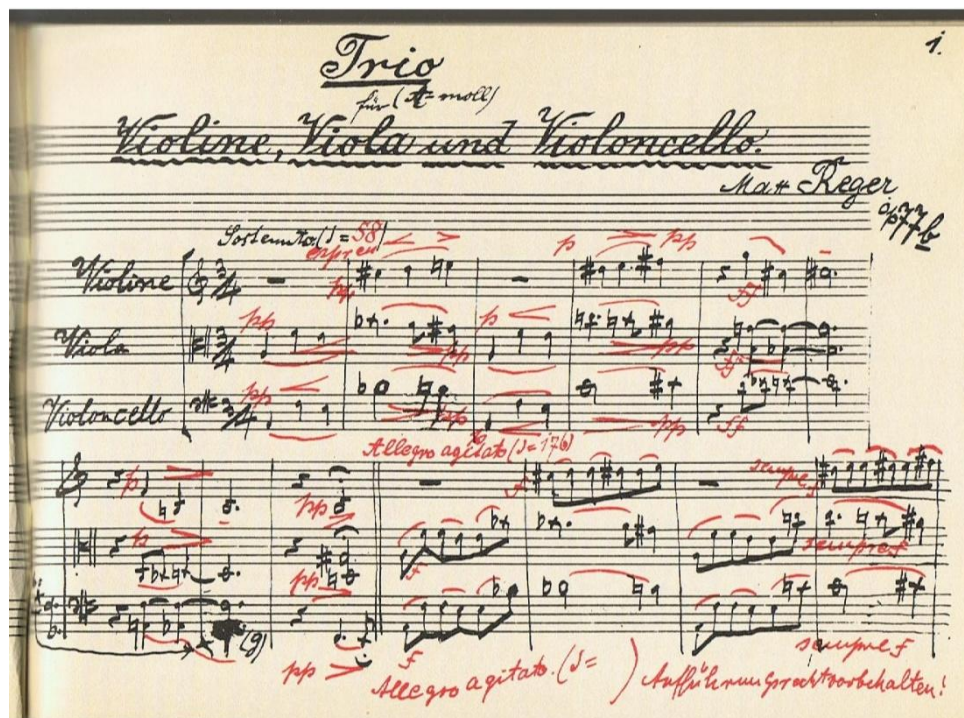 1.
Trio
für (A-moll)
Violine, Viola und Violoncello.
Max Reger
op 77b
Sostenuto. (♩= 58)
espress
p pp
Violine pp ff
pp p
Viola pp pp ff
pp
Violoncello pp pp ff
Allegro agitato (♩=176)
p f sempre f
pp
p
pp f sempre f
(g)
pp f sempre f
Allegro agitato. (♩= ) Aufführungsrecht vorbehalten!